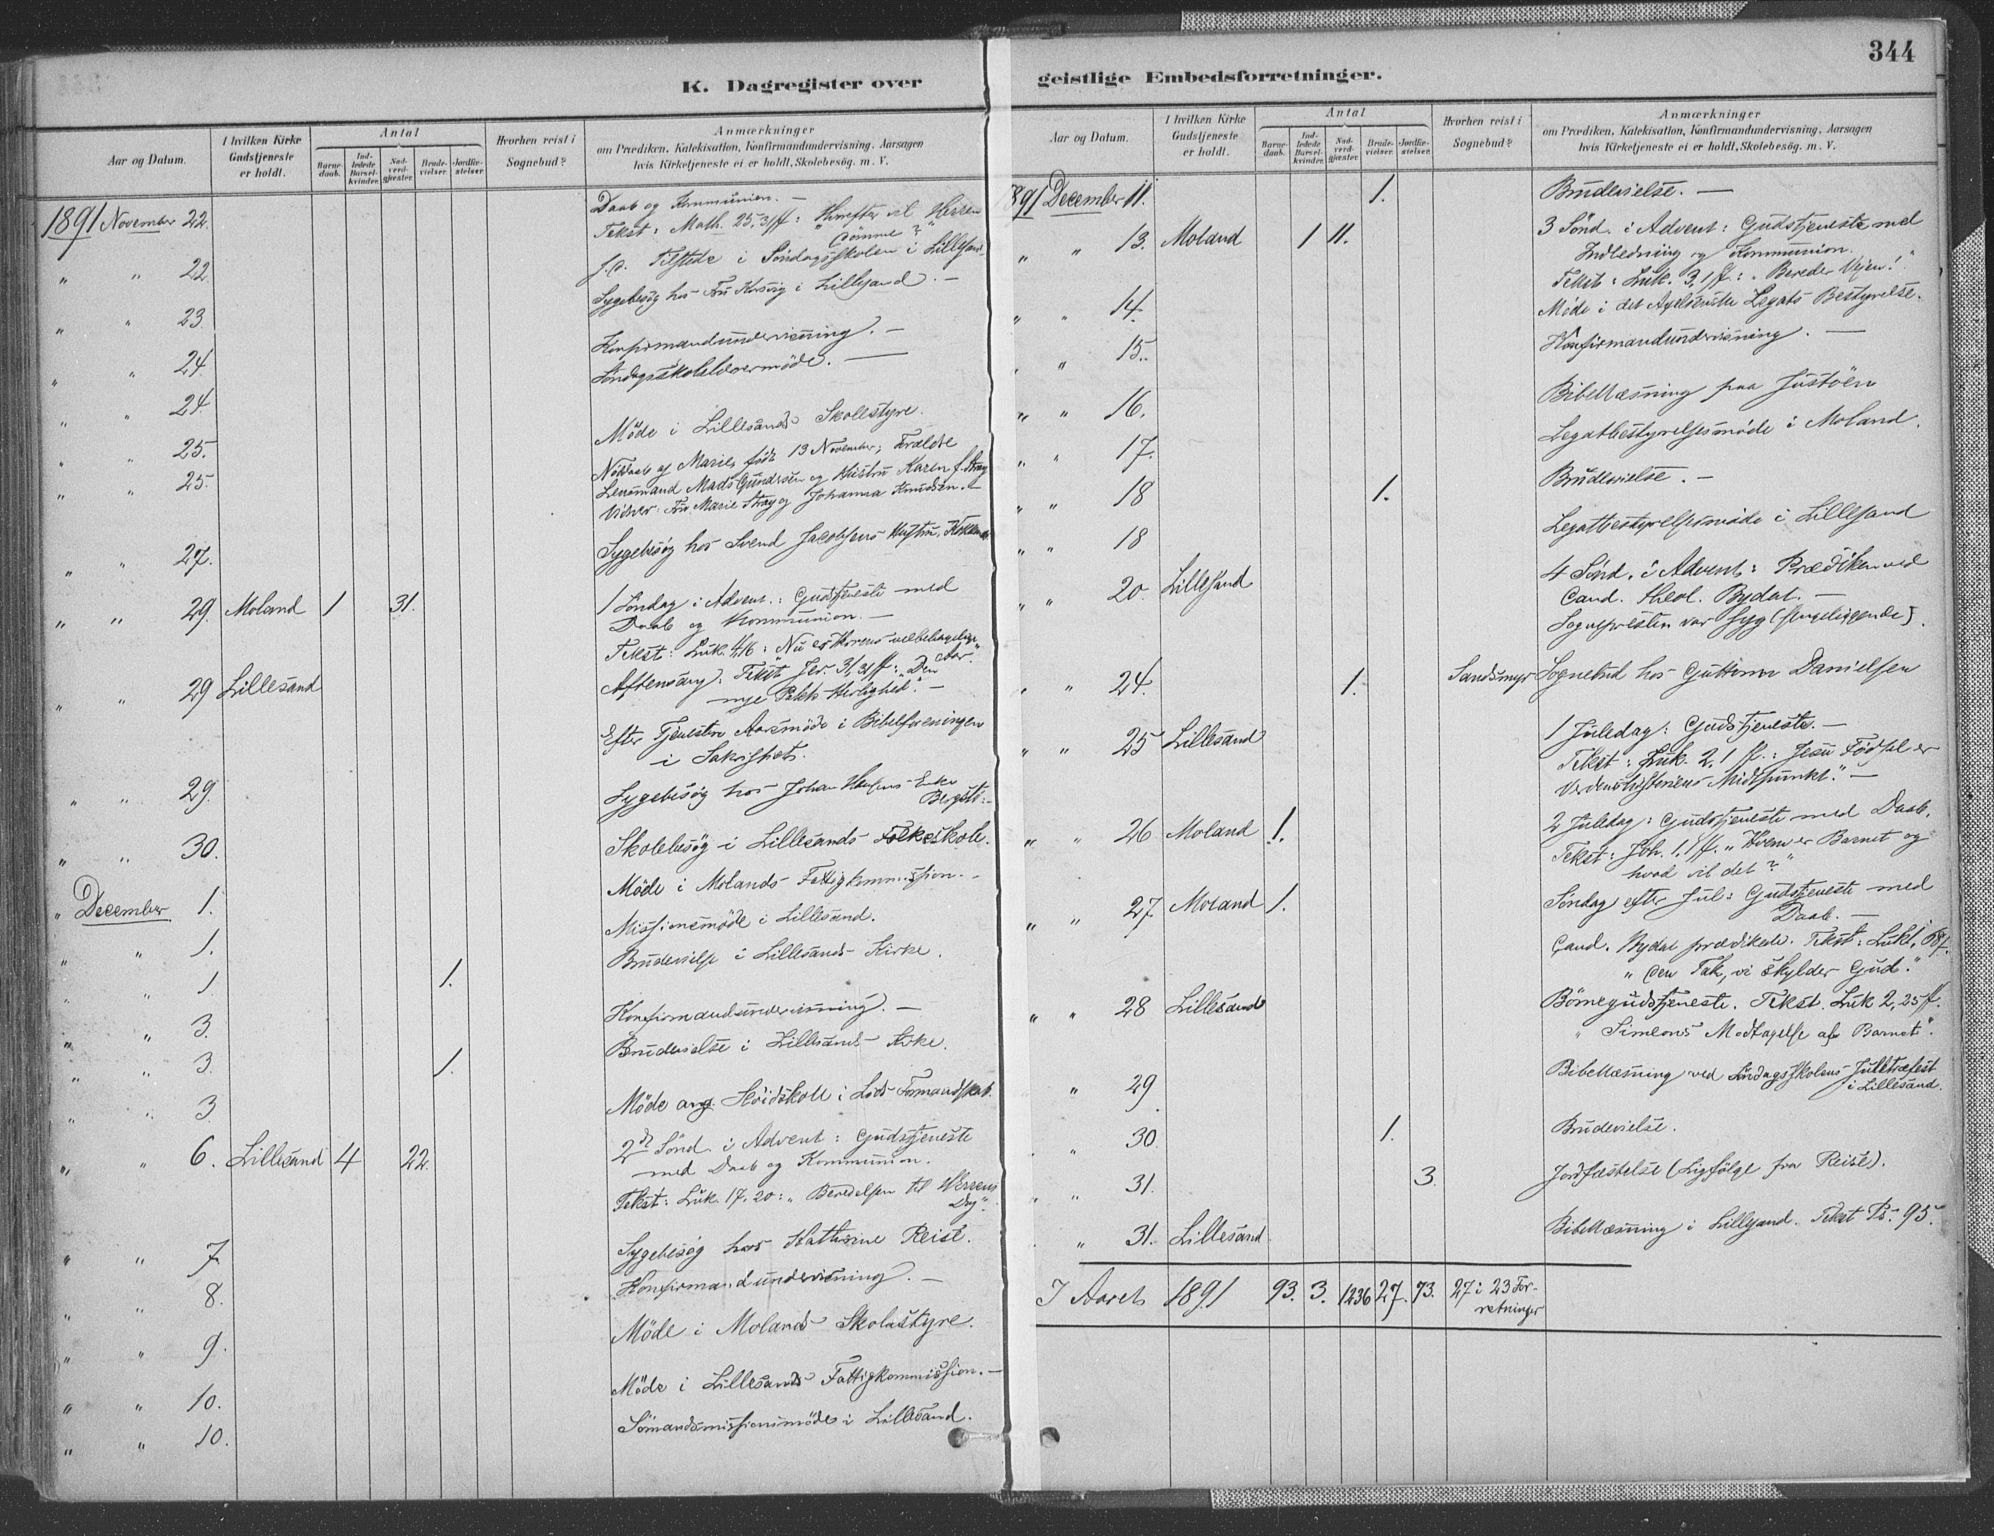 344
K. Dagregister over geistlige Embedsforretninger.
Aar og Datum.
I hvilken Kirke Gudstjeneste er holdt.
Antal
Barne-daab.
Ind-ledede Barsel-kvinder.
Nad-verd-gjester.
Brude-vielser.
Jordfæ-stelser.
Hvorhen reist i Sognebud?
Anmærkninger
om Prædiken, Katekisation, Konfirmandundervisning, Aarsagen
hvis Kirketjeneste ei er holdt, Skolebesøg. m. V.
1891 November 22. Daab og Kommunion. —
Tekst: Math. 25, 31 ff: "Hvorefter vil Herren
Dømme?"
" " 22 Tilstede i Søndagsskolen i Lillesand.
" " 23 Sygebesøg hos Fru i Lillesand. —
" " 24 Konfirmandundervisning. —
" " 24. Søndagsskolelærermøde. —
" " 25. Møde i Lillesands Skolestyre.
" " 25. Nøddaab af Marie, født 13 November; Forældre
Lensmand Mads Gundersen og Hustru Karen f. Stray
Vidner: Fru Marie Stray og Johanna Knudsen. —
" " 27. Sygebesøg hos Svend Jacobsens Hustru,
" " 29 Moland 1 31. 1 Søndag i Advent.: Gudstjeneste med
Daab og Kommunion. —
Tekst: Luk. 4, 16: Nu er Herrens velbehagelige
Aar."
" " 29 Lillesand Aftensang. Tekst Jer. 31, 31 ff: "Den
nye Pakts Herlighed." —
Efter Tjenesten Aarsmøde i Bibelforeningen
i Sakristiet.
" " 29. Sygebesøg hos Johan Enke
" " 30. Skolebesøg i Lillesands Folkeskole.
" December 1. Møde i Molands Fattigkommission. —
" " 1. Missionsmøde i Lillesand.
" " 1 1. Brudevielse i Lillesands Kirke.
" " 3. Konfirmandundervisning. —
" " 3. 1. Brudevielse i Lillesands Kirke.
" " 3 Møde ang. i Formandskab.
" " 6. Lillesand 4 22. 2d Sønd. i Advent: Gudstjeneste
med Daab og Kommunion.
Tekst: Luk. 17. 20: "Beredelsen til Herrens
Dag".
" " 7. Sygebesøg hos Kathrine Reise.
" " 8. Konfirmandundervisning. —
" " 9. Møde i Molands Skolestyre.
" " 10. Møde i Lillesands Fattigkommission. —
" " 10. Sømandsmissionsmøde i Lillesand.
Aar og Datum.
I hvilken Kirke Gudstjeneste er holdt.
Antal
Barne-daab.
Ind-ledede Barsel-kvinder.
Nad-verd-gjester.
Brude-vielser.
Jordfæ-stelser.
Hvorhen reist i Sognebud?
Anmærkninger
om Prædiken, Katekisation, Konfirmandundervisning, Aarsagen
hvis Kirketjeneste ei er holdt, Skolebesøg. m. V.
1891 December 11. 1. Brudevielse. —
" " 13. Moland 1 11. 3 Sønd. i Advent: Gudstjeneste med
Indledning og Kommunion.
Tekst: Luk. 3, 1 ff: "Bereder Vejen!"
" " 14. Møde i det Legats Bestyrelse.
" " 15. Konfirmandundervisning. —
" " 16. Bibellæsning paa Justöen
" " 17. Legatbestyrelsesmøde i Moland.
" " 18 1. Brudevielse. —
" " 18 Legatbestyrelsesmøde i Lillesand
" " 20. Lillesand 4 Sønd. i Advent: Prædiken ved
Cand. theol. Bydal. —
Sognepresten var syg (sengeliggende).
" " 24. 1. Sandsmyr Sognebud hos Guttorm Danielsen
" " 25 Lillesand 1 Juledag: Gudstjeneste. —
Tekst: Luk. 2, 1 ff.: Jesu Fødsel er
Verdenshistoriens Midtpunkt." —
" " 26 Moland 1. 2 Juledag: Gudstjeneste med Daab.
Tekst: Joh. 1, 1 ff. "Hvem er Barnet og
hvad vil det?"
" " 27. Moland 1. Søndag efter Jul: Gudstjeneste med
Daab. —
Cand. Bydal prædikede. Tekst: Luk 1,
"Den Tak, vi skylder Gud."
" " 28 Lillesand Börnegudstjeneste. Tekst. Luk 2, 25 ff.
"Simeons Modtagelse af Barnet".
" 29 Bibellæsning ved Søndagsskolens Juletræfest
i Lillesand.
" 30 1. Brudevielse.
" " 31. 3. Jordfæstelse (Ligfölge fra Reise).
" 31. Lillesand Bibellæsning i Lillesand. Tekst Ps. 95.
I Aaret 1891 93. 3. 1236 27. 73. 27 i 23 For-
retninger